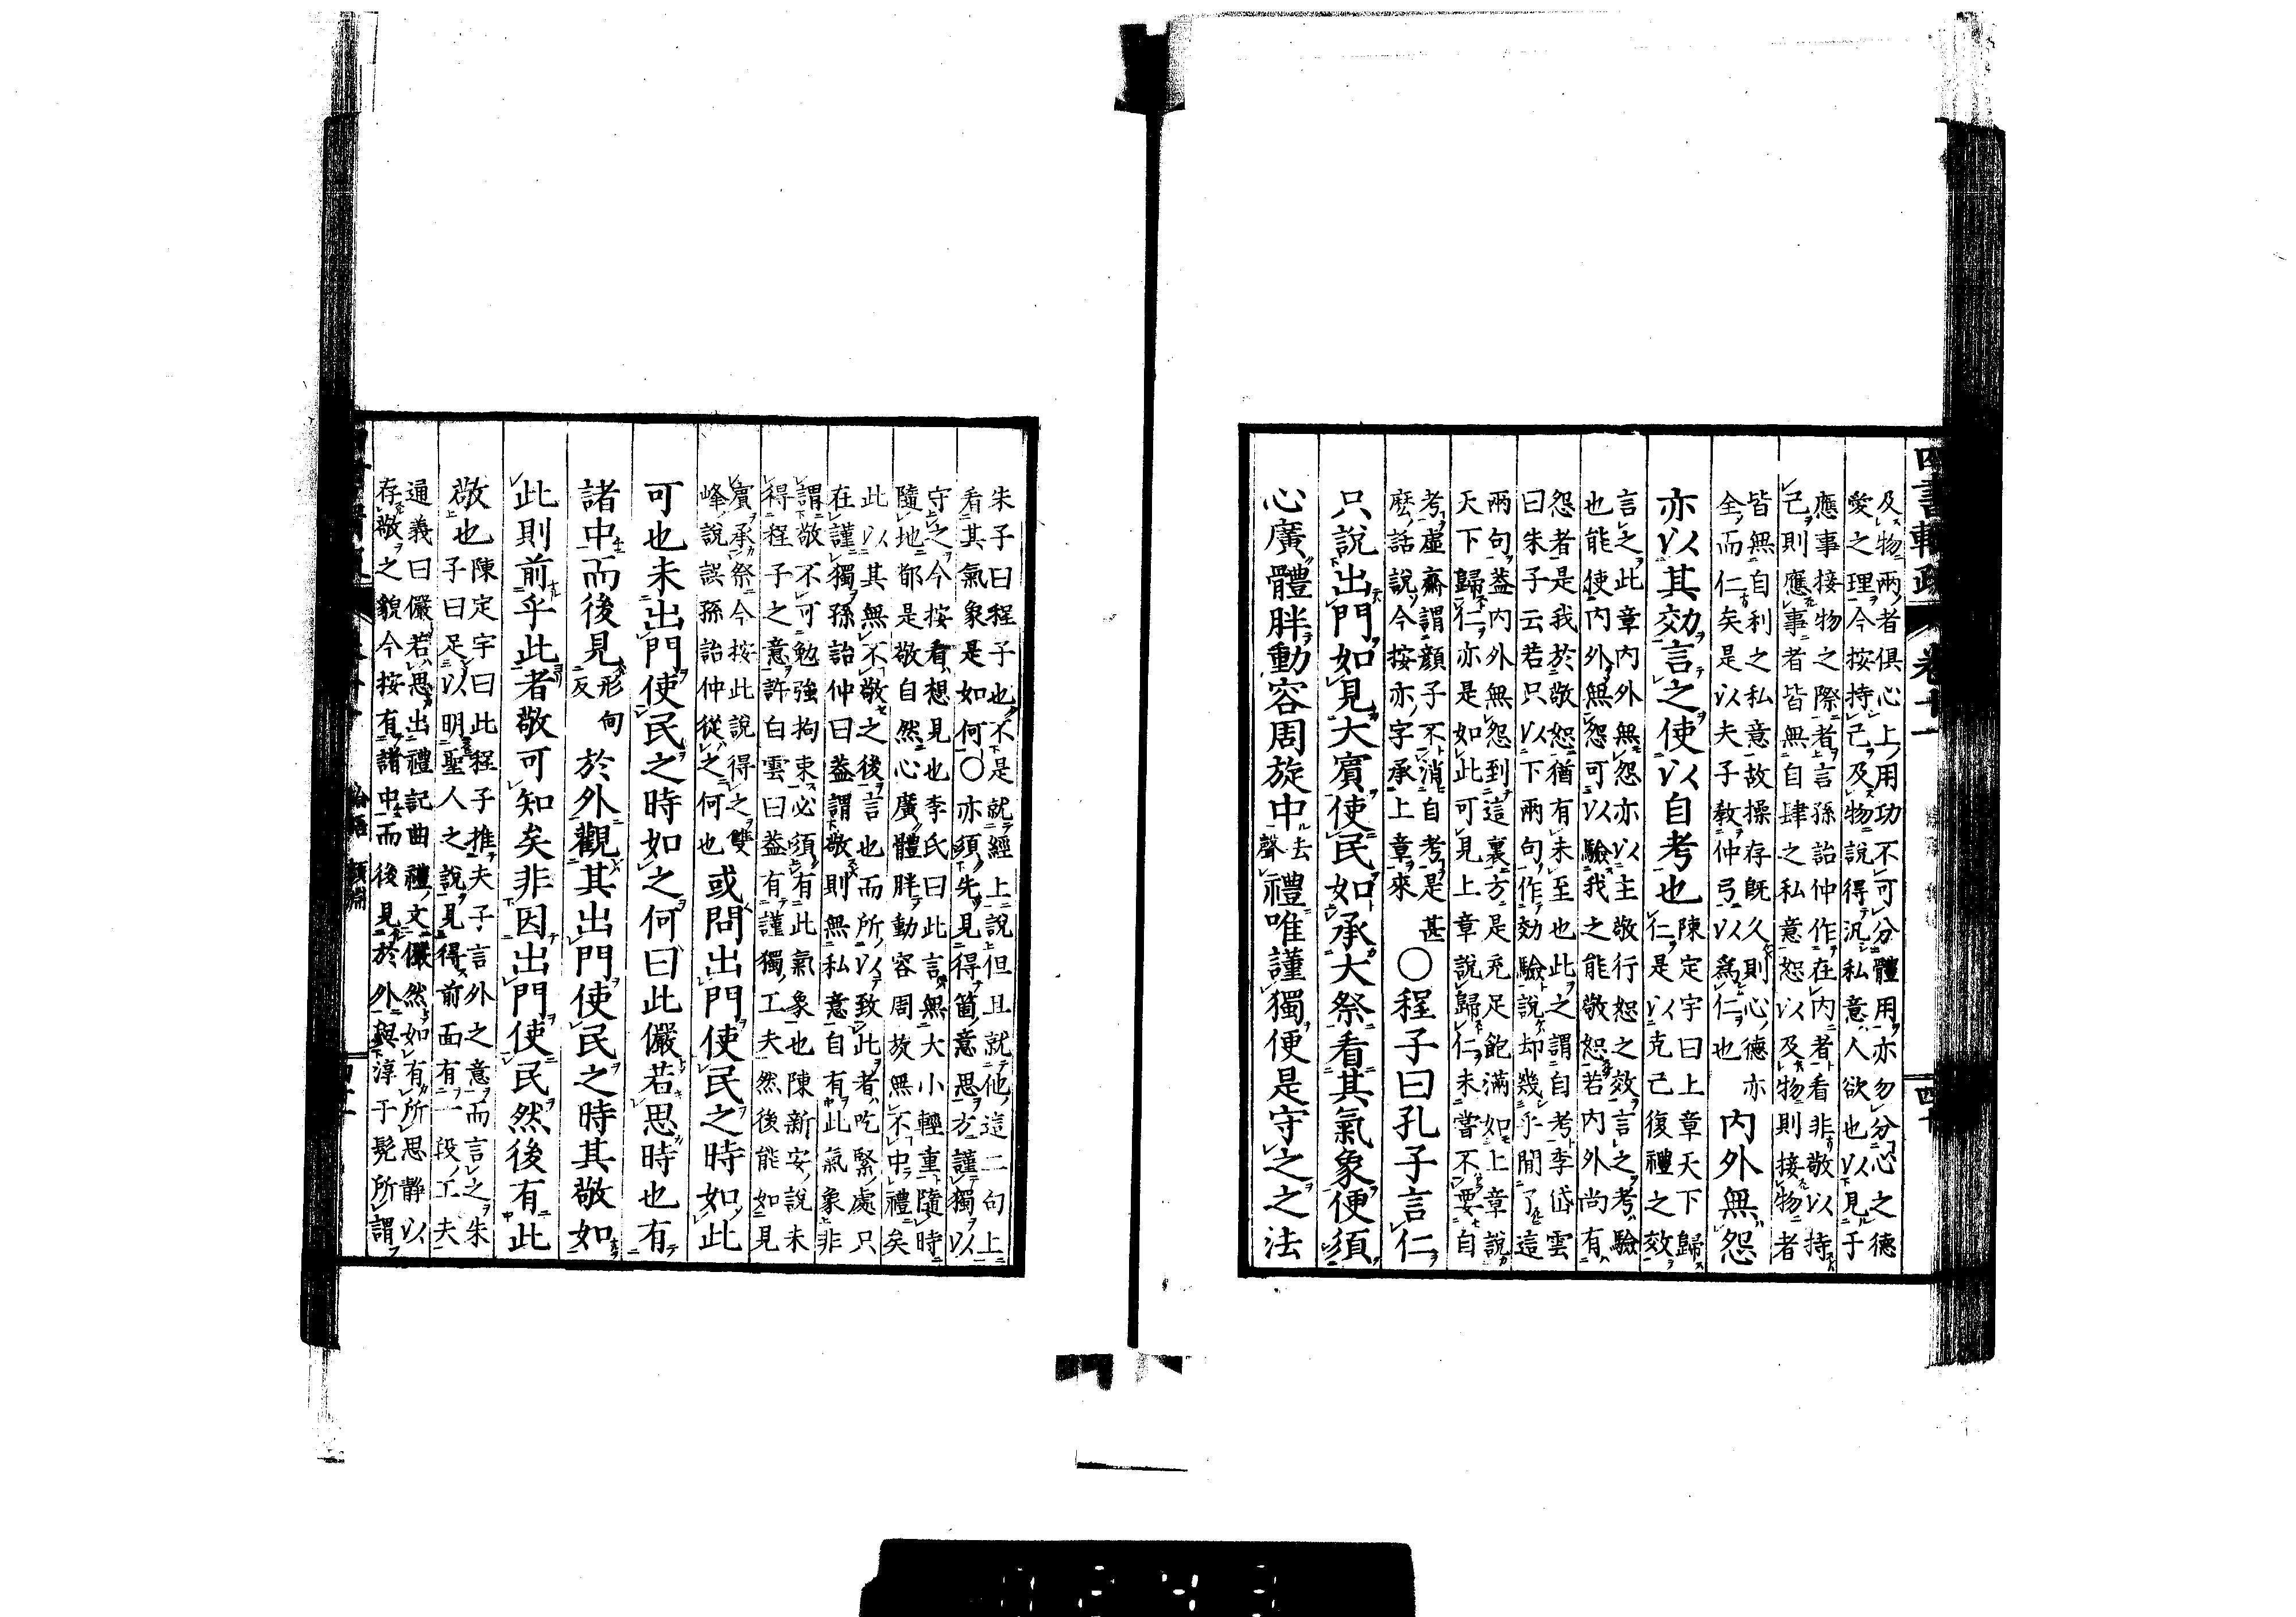 四書輯疏 卷十一 四十
及物兩者俱心上用功不可分體用亦勿分心之德
愛之理今按持己及物說得汎私意人欲也以見于
應事接物之際者言孫詒仲作在内者看非敬以持
己則應事者皆無自肆之私意恕以及物則接物者
皆無自利之私意故操存既久則心德亦
全而仁矣是以夫子教仲弓以爲仁也
内外無怨
亦以其効言之使以自考也
陳定宇曰上章天下歸
仁是以克己復禮之效
言之此章内外無怨亦以主敬行恕之效言之考驗
也能使内外無怨可以驗我之能敬恕若内外尚有
怨者是我於敬恕猶有未至也此之謂自考李岱雲
曰朱子云若只以下兩句作効驗說却幾乎閒了這
兩句蓋内外無怨到這裏方是充足飽滿如上章說
天下歸仁亦是如此可見上章說歸仁未嘗不要自
考虛齋謂顔子不消自考是甚
麽話說今按亦字承上章來
○程子曰孔子言仁
只說出門如見大賓使民如承大祭看其氣象便須
心廣體胖動容周旋中去聲禮唯謹獨便是守之之法
朱子曰程子也不是就經上說但且就他這二句上
看其氣象是如何○亦須先見得箇意思方謹獨以
守之今按看想見也李氏曰此言無大小輕重隨時
隨地都是敬自然心廣體胖動容周旋無不中禮矣
此以其無不敬之後言也而所以致此者吃緊處只
在謹獨孫詒仲曰蓋謂敬則無私意自有此氣象非
謂敬不可勉強拘束必須有此氣象也陳新安說未
得程子之意許白雲曰蓋有謹獨工夫然後能如見
賓承祭今按此說得之雙
峰說誤孫詒仲從之何也
或問出門使民之時如此
可也未出門使民之時如之何曰此儼若思時也有
諸中而後見形甸反於外觀其出門使民之時其敬如
此則前乎此者敬可知矣非因出門使民然後有此
敬也
陳定宇曰此程子推夫子言外之意而言之朱
子曰足以明聖人之說見得前面有一段工夫
通義曰儼若思出禮記曲禮文儼然如有所思靜以
存敬之貌今按有諸中而後見於外與淳于髡所謂
論語 顔淵